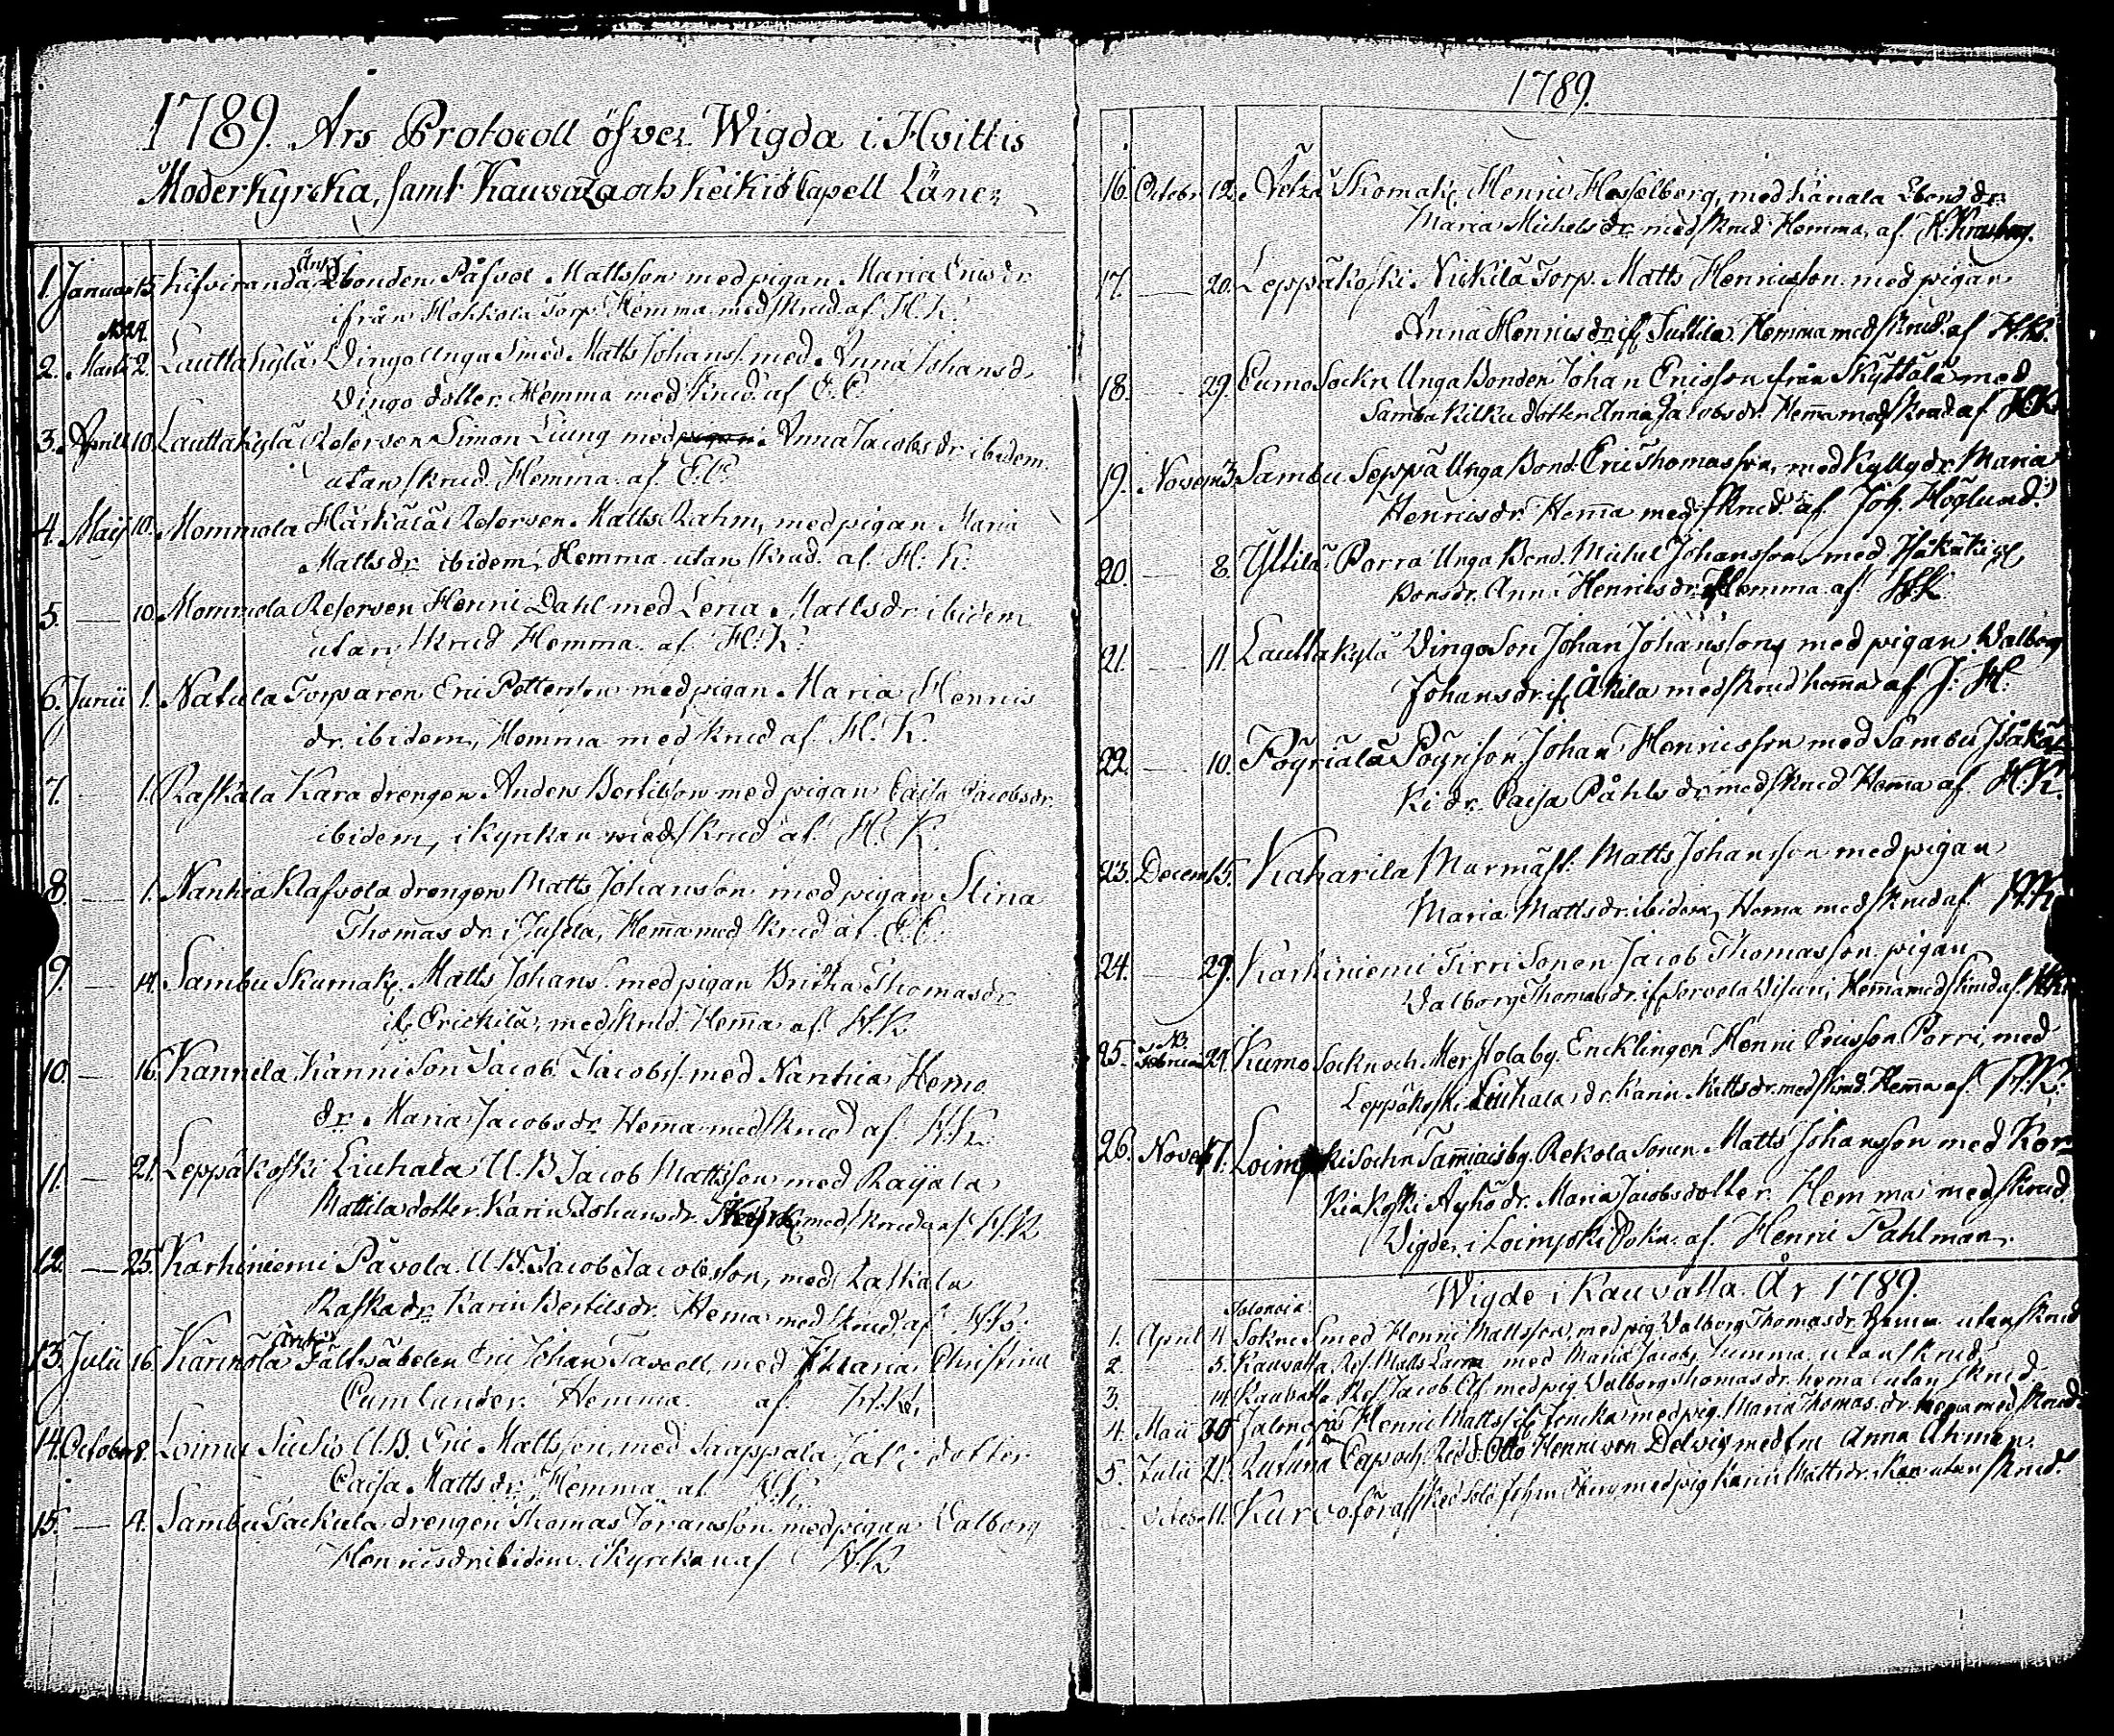 1789. Års Protocoll öfver Wigda i Hvittis
Moderkyrcka, samt Kauvatza och Keikiö Capell Läner
1. Januar 15. Kifviranda Enkl. Ebonden Påfvel Mattsson med pigan Maria Erics dr
ifrån Hokkola Torp Hemma med skrud af H.K.
NB 24.
2. Marti 2. Lauttakylä Vingo Unga Smed Matts Johanss. med Anna Johansd.
Vingo dotter. Hemma med skrud af E.C.
3. Aprill 10. Lauttakylä Reserven Simon Liung med Anna Jacobs dr ibidem
utan skrud. Hemma. af E.C.
4. Maij 10. Mommola Härkälä Reserven Matts Rahm, med pigan Maria
Matts dr ibidem, Hemma utan skrud. af H.K.
5. — 10. Mommola Reserven Henric Dahl med Lena Matts dr ibidem
utan skrud Hemma. af H.K.
6. Junii 1. Natula Torparen Eric Pettersson med pigan Maria Henrics
dr. ibidem, Hemma med skrud af H.K.
7. — 1. Raskala Kara drengen Anders Bertilsson med pigan Caisa Jacobs dr.
ibidem, i kyrkan med skrud af H.K.
8. — 1. Nanhia Klafvola drengen Matts Johansson med pigan Stina
Thomas dr. i Jusela, Hemma med skrud af E.C.
9. — 14. Sambu Skumak. Matts Johans. med pigan Britha Thomasdr
if. Erickilä, med skrud. Hemma af H.K.
10. — 16. Kannila Kanni Son Jacob Jacobss. med Nanhia Hemo
dr. Maria Jacobsdr. Hemma med skrud af H.K.
11. — 21. Leppäkoski Liuhala U.B Jacob Mattsson med Raijala
Mattila dotter. Karin Johansdr. med skrud af H.K
12. — 25. Karhiniemi Pävola. U.B. Jacob Jacobsson, med Raskala
Raska dr. Karin Bertilsdr. Hemma med skrud af H.K.
13. Julii 16. Karinola Enkl. Fältväbelen Eric Johan Tavell, med Maria Christina
Cumlander. Hemma. af H.K.
14. October 8. Loima Siuko U.B. Eric Mattsson, med Saappala dotter
Caisa Matts dr. Hemma af H.K.
15. — 4. Sambu Tackula drengen Thomas Göransson med pigan Valborg
Henricsdr ibidem. i kyrckan af H.K
1789.
16. Octobr 12. Äetzä Skomak. Henric Hasselberg, med Känala Ebond dr.
Maria Michels dr. med skrud Hemma, af
17. — 20. Leppäkoski Nickilä Torp. Matts Henricsson med pigan
Anna Henricsdr if Suttila. Hemma med skrud. af H.K.
18. — 29. Eumo Sockn Unga Bonden Johan Ericsson från Skyttälä med
Samba Kilku dotter Anna Jacobs dr. Hemma med skrud. af H.K.
19. Novem 3. Sambu Seppä Unga Bond. Eric Thomasson, med Kylly dr. Maria
Henricsdr. Hemma med skrud. af Joh. Höglund.
20. — 8. Yttilä Porra Unga Bond. Michel Johansson med
Bons dr. Ann. Henrics dr. Hemma af H.K
21. — 11. Lauttakylä Vingo Son Johan Johansson med pigan Valborg
Johansdr. if Åkila med skrud hemma af J.H.
22. — 10. Pöyriälä Pöyri son Johan Henricsson med Sambu
ki dr. Caisa Påhls dr. med skrud Hemma af H.K.
23. Decem 15. Kaharila Murmäst. Matts Johansson med pigan
Maria Mattsdr. ibidem, Hemma med skrud af H.K
24. — 29. Karhiniemi Tirri Sonen Jacob Thomasson pigan
Valborg Thomasdr. if. Sorvola Visuri, Hemma med skrud af. H.K.
NB.
25. Februar 24. Kumo Sockn och Merstola by. Encklingen Henric Ericsson Porri, med
Leppäkoski Liuhala dr. Karin Mattsdr. med skrud. Hemma af H.K.
26. Novem 17. Loimjoki Sockn Tammiais by. Rekola sonen Matts Johansson med Kor=
kiakoski Äyhö dr. Maria Jacobsdotter. Hemma med skrud.
Vigde, i Loimjoki Sokn. af Henric Pahlman.
Wigde i Kauvatta År 1789.
1. April 4 Sokne Smed Henric Mattsson, med pig. Valborg Thomas dr. hemma utan skrud
2. — 5. Kauvatta Res. Matts Lama med Maria Jacobs hemma utan skrud
3. — 14. Kauvatta Res. Jacob Alf med pig. Valborg Thomas dr. hema utan skrud.
4. Maii 30 Henric Mattss. med pig. Maria Thomas. dr. hema med skrud.
5. Julii 21. Cap och Rid. Otto Henric von Delwig med frn Anna Uhman.
Octob. 11. Johan Öberg med pig Karin Mattsdr. utan skrud.